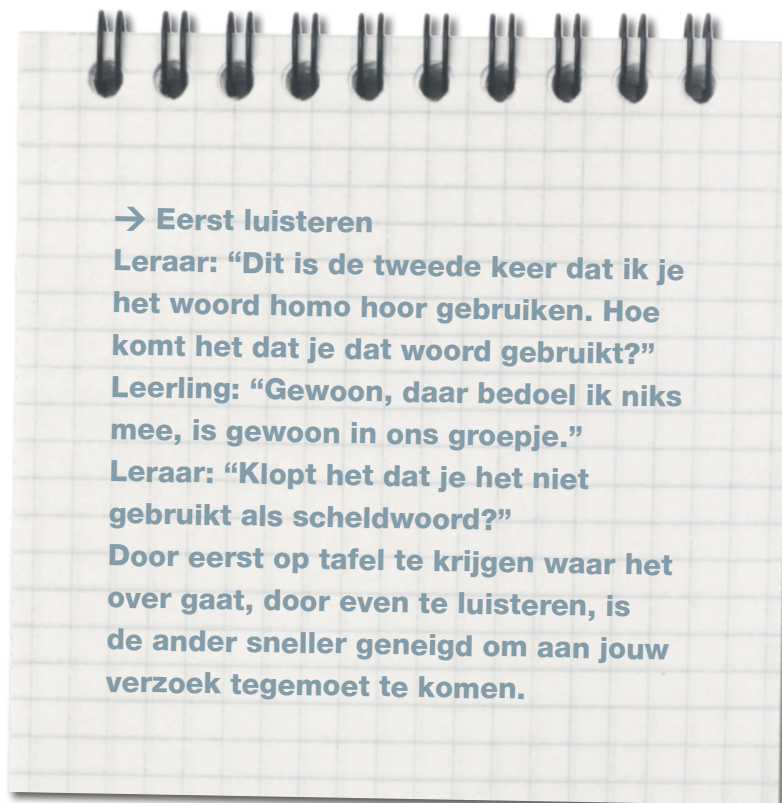 → Eerst luisteren
Leraar: “Dit is de tweede keer dat ik je
het woord homo hoor gebruiken. Hoe
komt het dat je dat woord gebruikt?”
Leerling: “Gewoon, daar bedoel ik niks
mee, is gewoon in ons groepje.”
Leraar: “Klopt het dat je het niet
gebruikt als scheldwoord?”
Door eerst op tafel te krijgen waar het
over gaat, door even te luisteren, is
de ander sneller geneigd om aan jouw
verzoek tegemoet te komen.